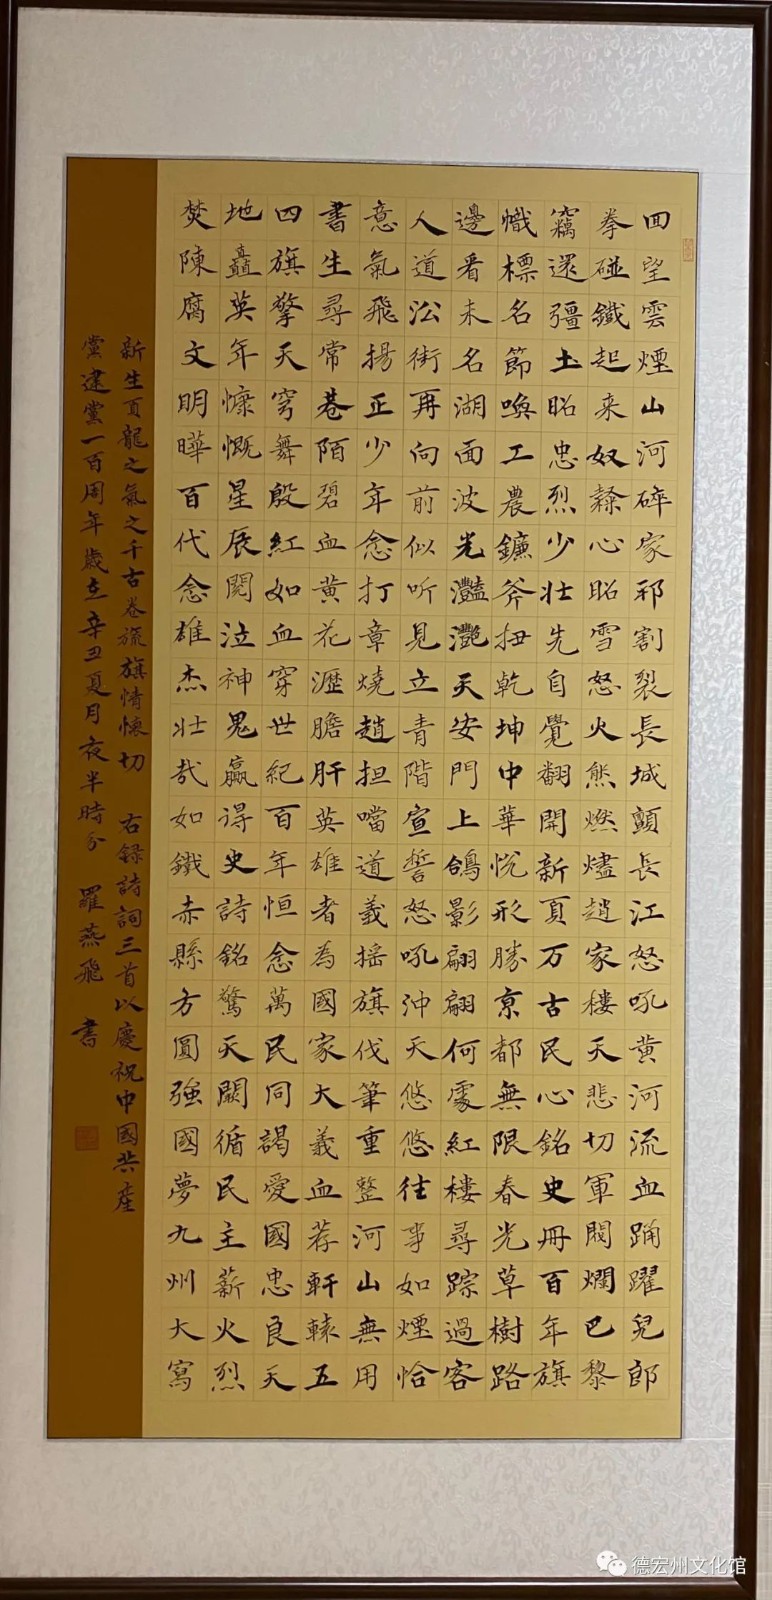 回望雲煙山河碎家邦割裂長城顫長江怒吼黄河流血踊躍兒郎
拳碰鐵起來奴隸心昭雪怒火熊燃燼趙家樓天悲切軍閥爛巴黎
竊還彊土昭忠烈少壯先自覺翻開新頁万古民心銘史冊百年旗
幟標名節喚工農鐮斧扭乾坤中華悅形勝京都無限春光草樹路
邊看未名湖面波光灩灧天安門上鴿影翩翩何處紅樓尋踪過客
人道沿街再向前似听見立青階宣誓怒吼沖天悠悠往事如煙恰
意氣飛揚正少年念打章燒趙担當道義搖旗伐筆重整河山無用
書生尋常巷陌碧血黄花瀝膽肝英雄者為國家大義血荐軒轅五
四旗擎天穹舞殷紅如血穿世紀百年恒念萬民同謁愛國忠良天
地矗英年慷慨星辰闕泣神鬼贏得史詩銘驚天闕循民主薪火烈
焚陳腐文明曄百代念雄杰壯哉如鐵赤縣方圓強國夢九州大寫
新生頁龍之氣之千古卷旒旗情懷切 右録詩詞三首以慶祝中國共產
黨建黨一百周年歲在辛丑夏月夜半時分 羅燕飛 書
德宏州文化馆